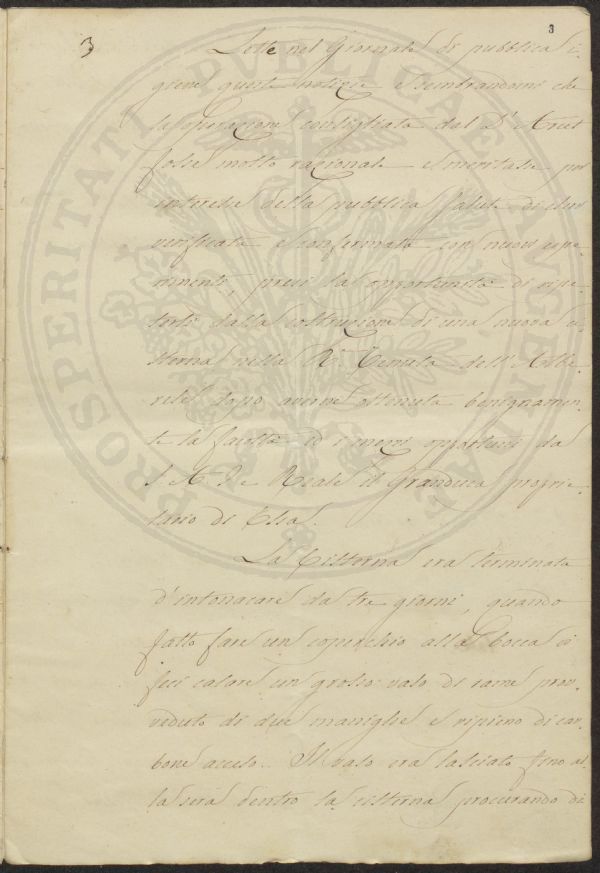 3
3
Lette nel Giornale di pubblica i-
giene queste notizie e sembrandomi che
la operazione consigliata dal Dr
fosse molto razionale e meritasse per
interesse della pubblica salute di esser
verificata e confermata con nuovi espe-
rimenti, presi la opportunità di ripe-
terli dalla costruzione di una nuova ci-
sterna nella R. Tenuta dell' Albe-
rese dopo averne ottenuta benignamen-
te la facoltà ed i mezzi opportuni da
S. A. I. e Reale il Granduca proprie-
tario di Essa.
La Cisterna era terminata
d'intonacare da tre giorni, quando
fatto fare un coperchio alla bocca vi
feci calare un grosso vaso di rame prov-
veduto di due maniglie e ripieno di car-
bone acceso. Il vaso era lasciato fino al-
la sera dentro la cisterna procurando di
PROSPERITATI PUBLICAE AUGENDAE